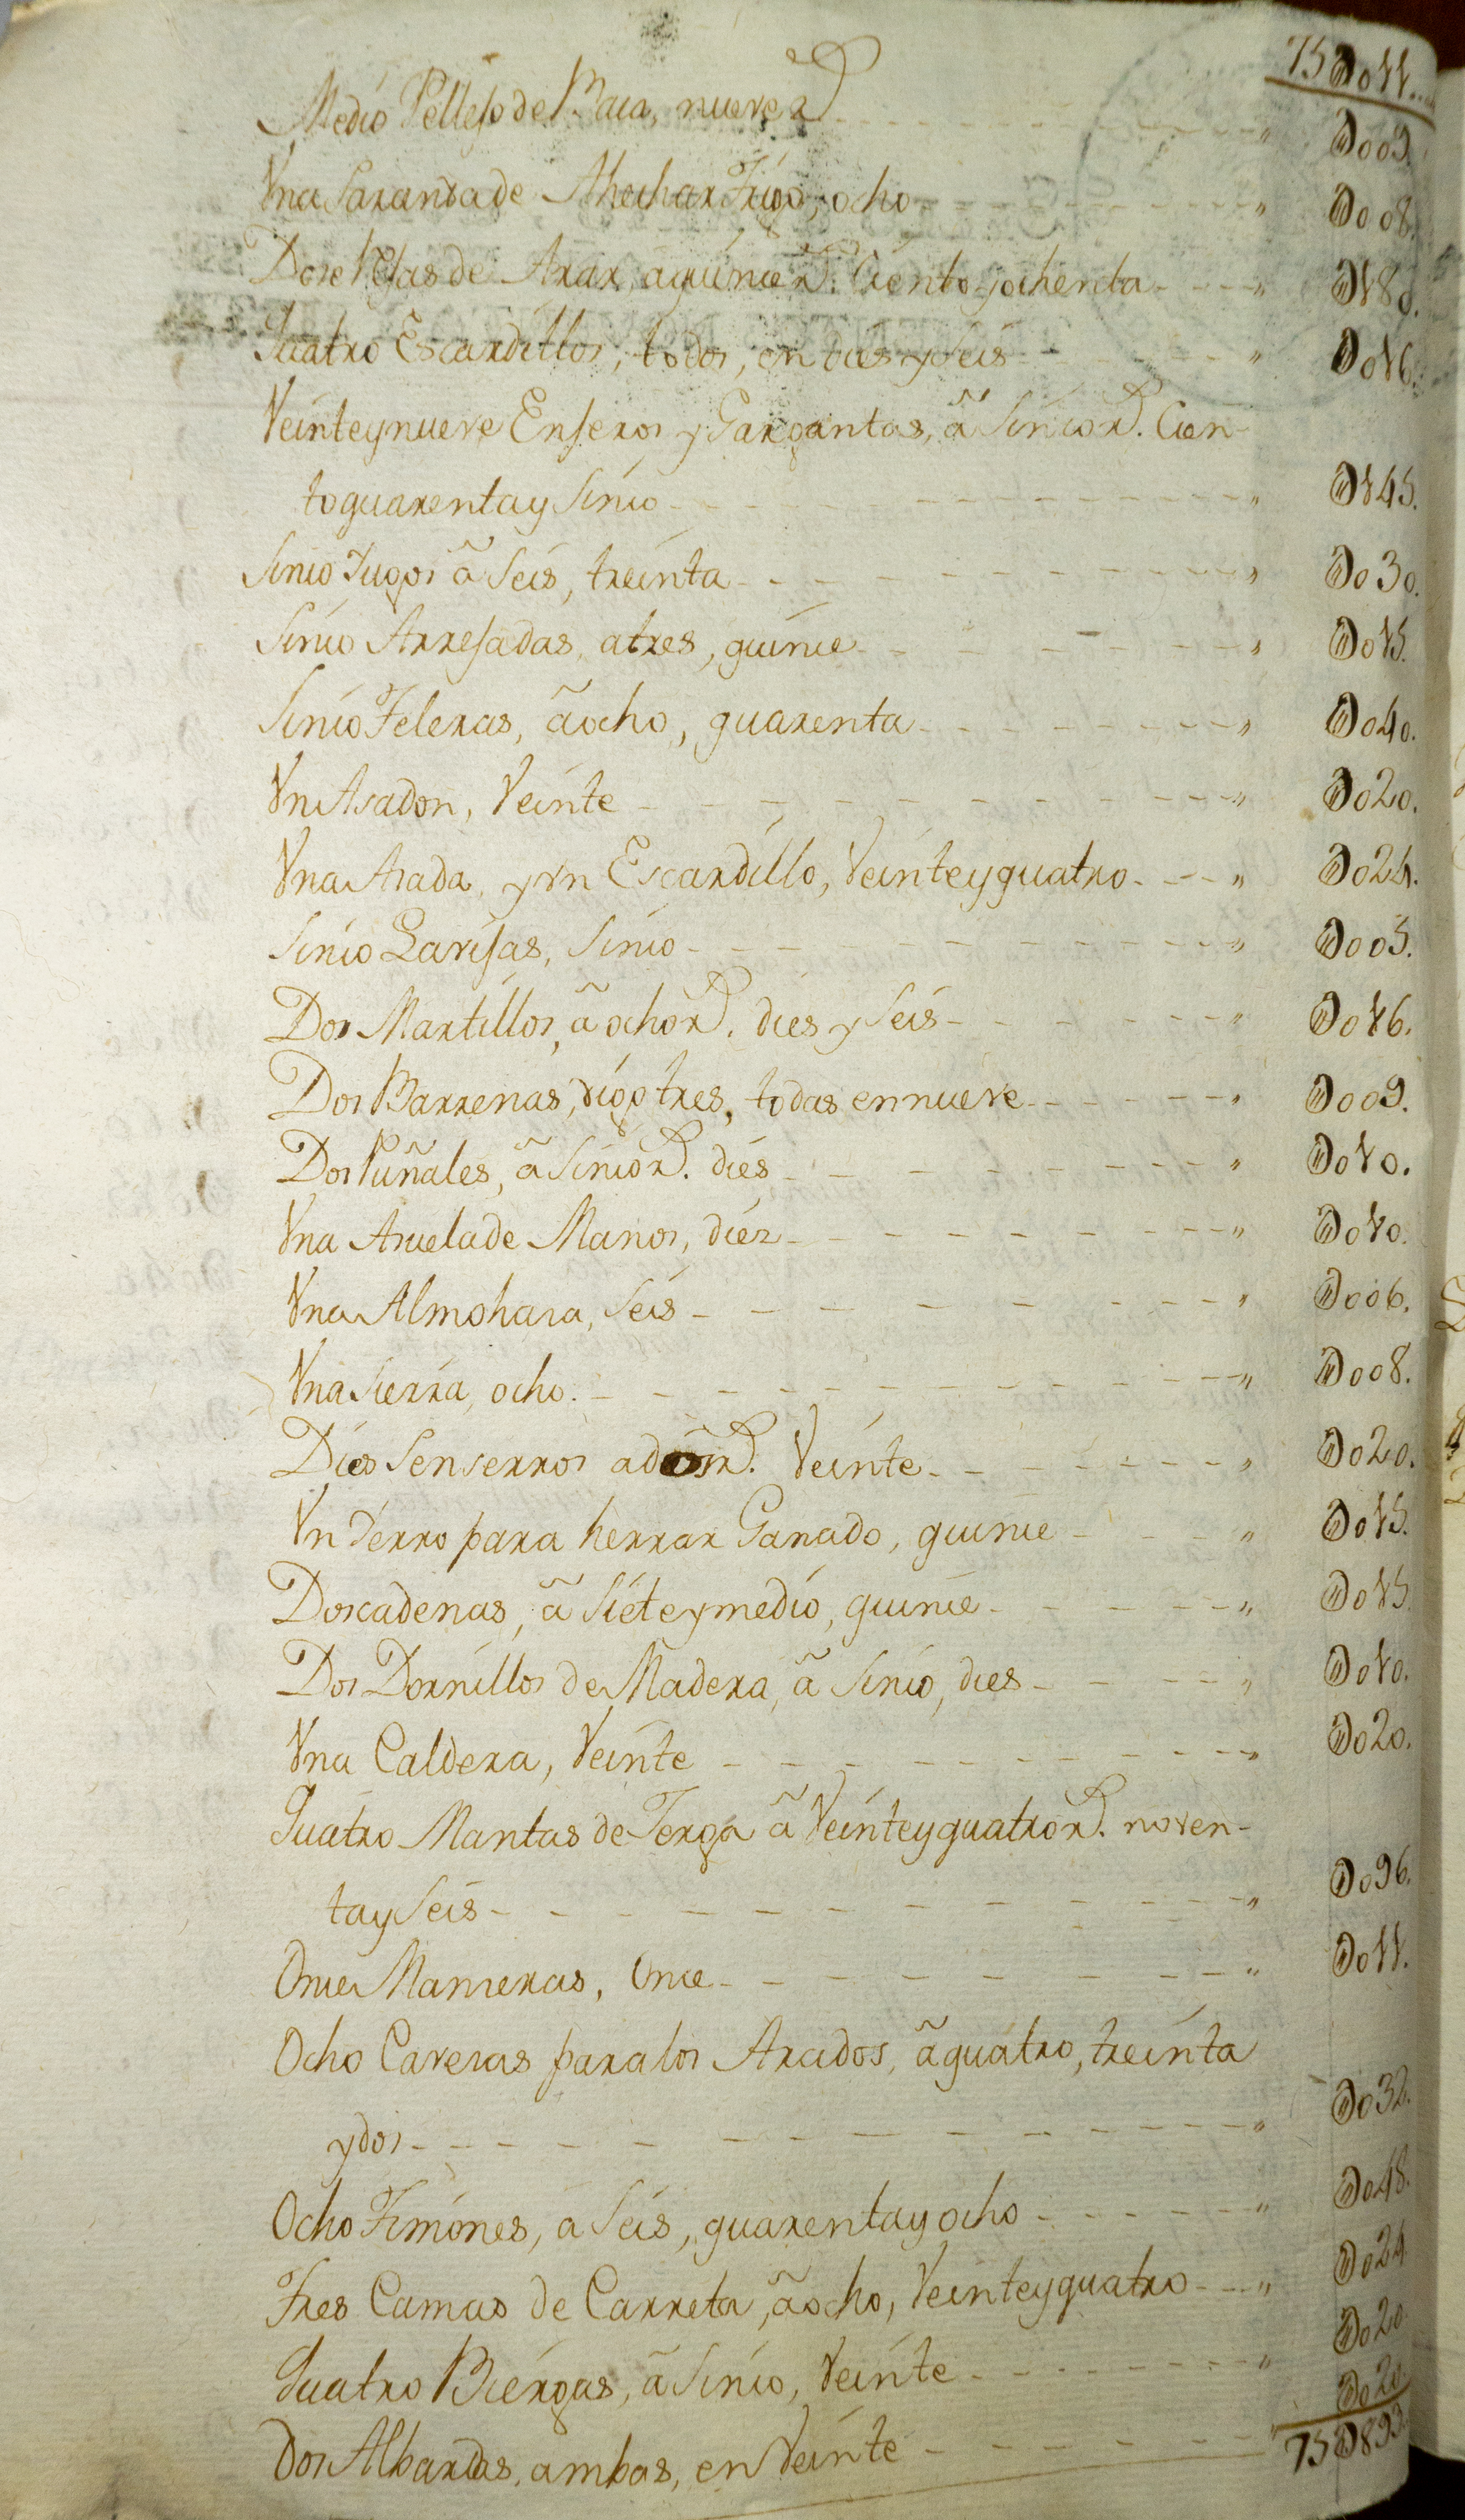 75U011.
Medio Pellejo de Baca, nueve rs. U009.
Vna Saranda de Ahechar Trigo, ocho U008.
Dose Rejas de Arar, a quince rs. Ciento y ochenta U180.
Quatro Escardillos, todos, en dies y seis U016.
Veinte y nueve Enseros y Gargantas, â sinco rs. Cien-
to quarenta y sinco U145.
Sinco Yugos â seis, treinta U030.
Sinco Arrejadas, a tres, quince U015.
Sinco Teleras, â ocho, quarenta U040.
Vn Asadon, Veinte U020.
Vna Asada, y vn Escardillo, Veinte y quatro U024.
Sinco Lavijas, sinco U005.
Dos Martillos, â ocho rs. dies y seis U016.
Dos Barrenas, digo tres, todas en nueve U009.
Dos Puñales, â sinco rs. dies U010.
Vna Asuela de Manos, diez U010.
Vna Almohasa, seis U006.
Vna Sierra, ocho. U008.
Dies Senserros a dos rs. Veinte U020.
Vn Yerro para herrar Ganado, quince U015.
Dos cadenas, â siete y medio, quince U015.
Dos Dornillos de Madera, â sinco, dies U010.
Vna Caldera, Veinte U020.
Quatro Mantas de Jerga â Veinte y quatro rs. noven-
ta y seis U096.
Once Manseras, Once U011.
Ocho Cavesas para los Arados, â quatro, treinta
y dos U032.
Ocho Timones, a seis, quarenta y ocho U048.
Tres Camas de Carreta, â ocho, Veinte y quatro U024.
Quatro Biergas, â sinco, Veinte U020.
Dos Albardas, ambas, en Veinte U020.
75U893.